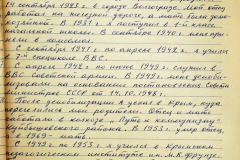 1923 г. в городе Волгограде. Мой отец
работал на железной дороге, а мать была домо-
хозяйкой. В 1931 г. я поступил в 1-й класс
начальной школы. В сентябре 1940 г. меня при-
няли в комсомол.
С сентября 1941 г. по апрель 1942 г. я учился
в спецшколе ВВС.
С апреля 1942 г. по июнь 1943 г. служил в
ВВС Советской армии. В 1943 г. меня демоби-
лизовали на основании постановления Совета
Министров СССР от 14.10.1948 г.
После демобилизации я уехал в Крым, куда
переехали мои родители. Отец и мать
работали в колхозе „Путь к коммунизму"
Куйбышевского района. В 1953 г. умер отец,
а в 1969 г. мать.
С 1949 г. по 1953 г. я учился в Крымском
педагогическом институте им. М.В. Фрунзе.